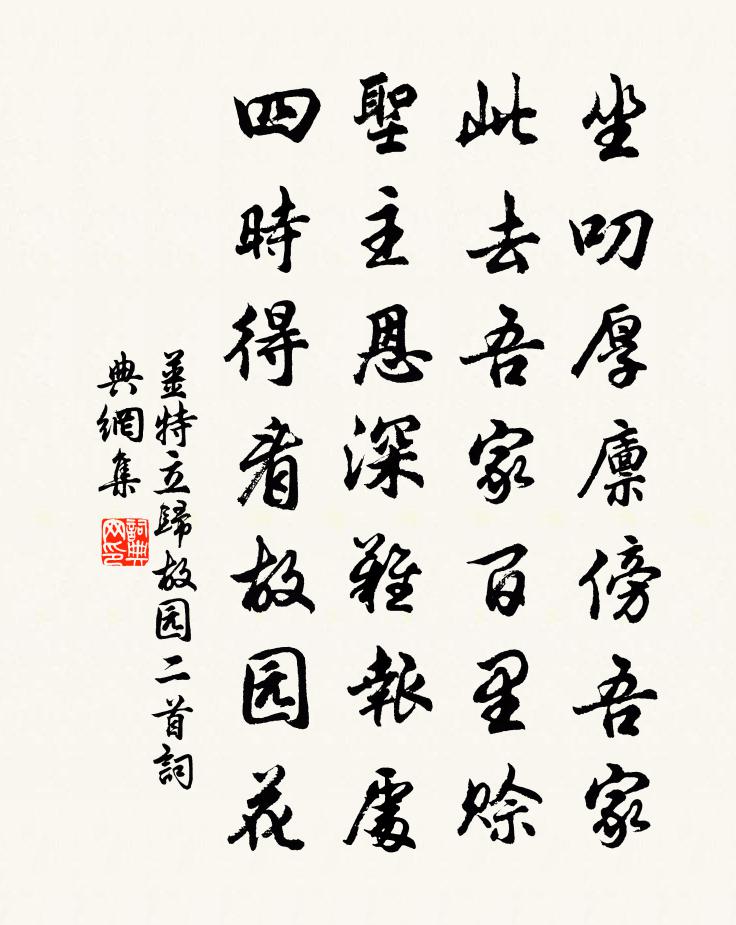 坐叨厚廪傍吾家
此去吾家百里賒
聖主恩深難報處
四時得看故园花
姜特立歸故园二首詞
典網集
詞典网印